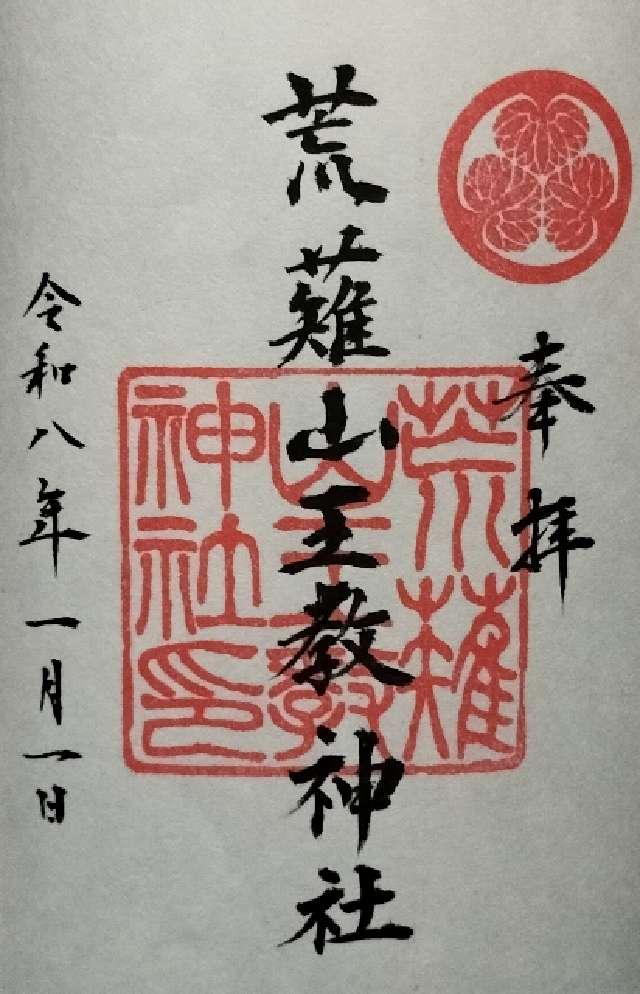 奉拝
荒薙山王教神社
令和八年一月一日
荒薙
山王教
神社印